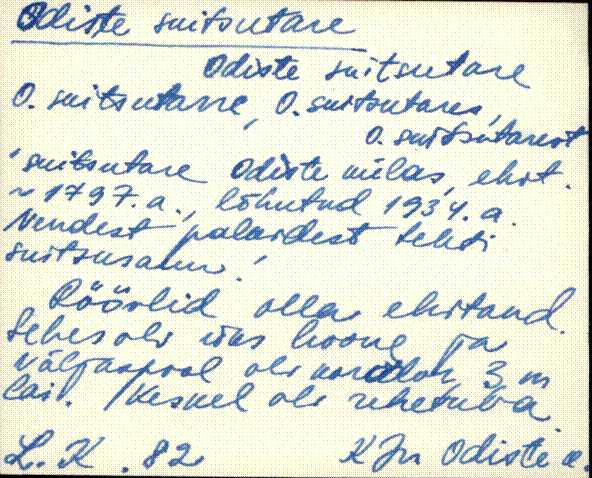 Odiste suitsutare
Odiste suitsutare
O. suitsutarre, O. suitsutares,
O. suitsutarest
'suitsutare Odiste külas, ehit.
~ 1797. a., lõhutud 1934. a.
Nendest palkidest tehti
suitsusaun.'
Röövlid olla ehitand.
Sehes oli uus hoone ja
väljaspool oli varialone 3 m
lai. Keskel oli rehetuba.
L. K. 82 KJn Odiste k.